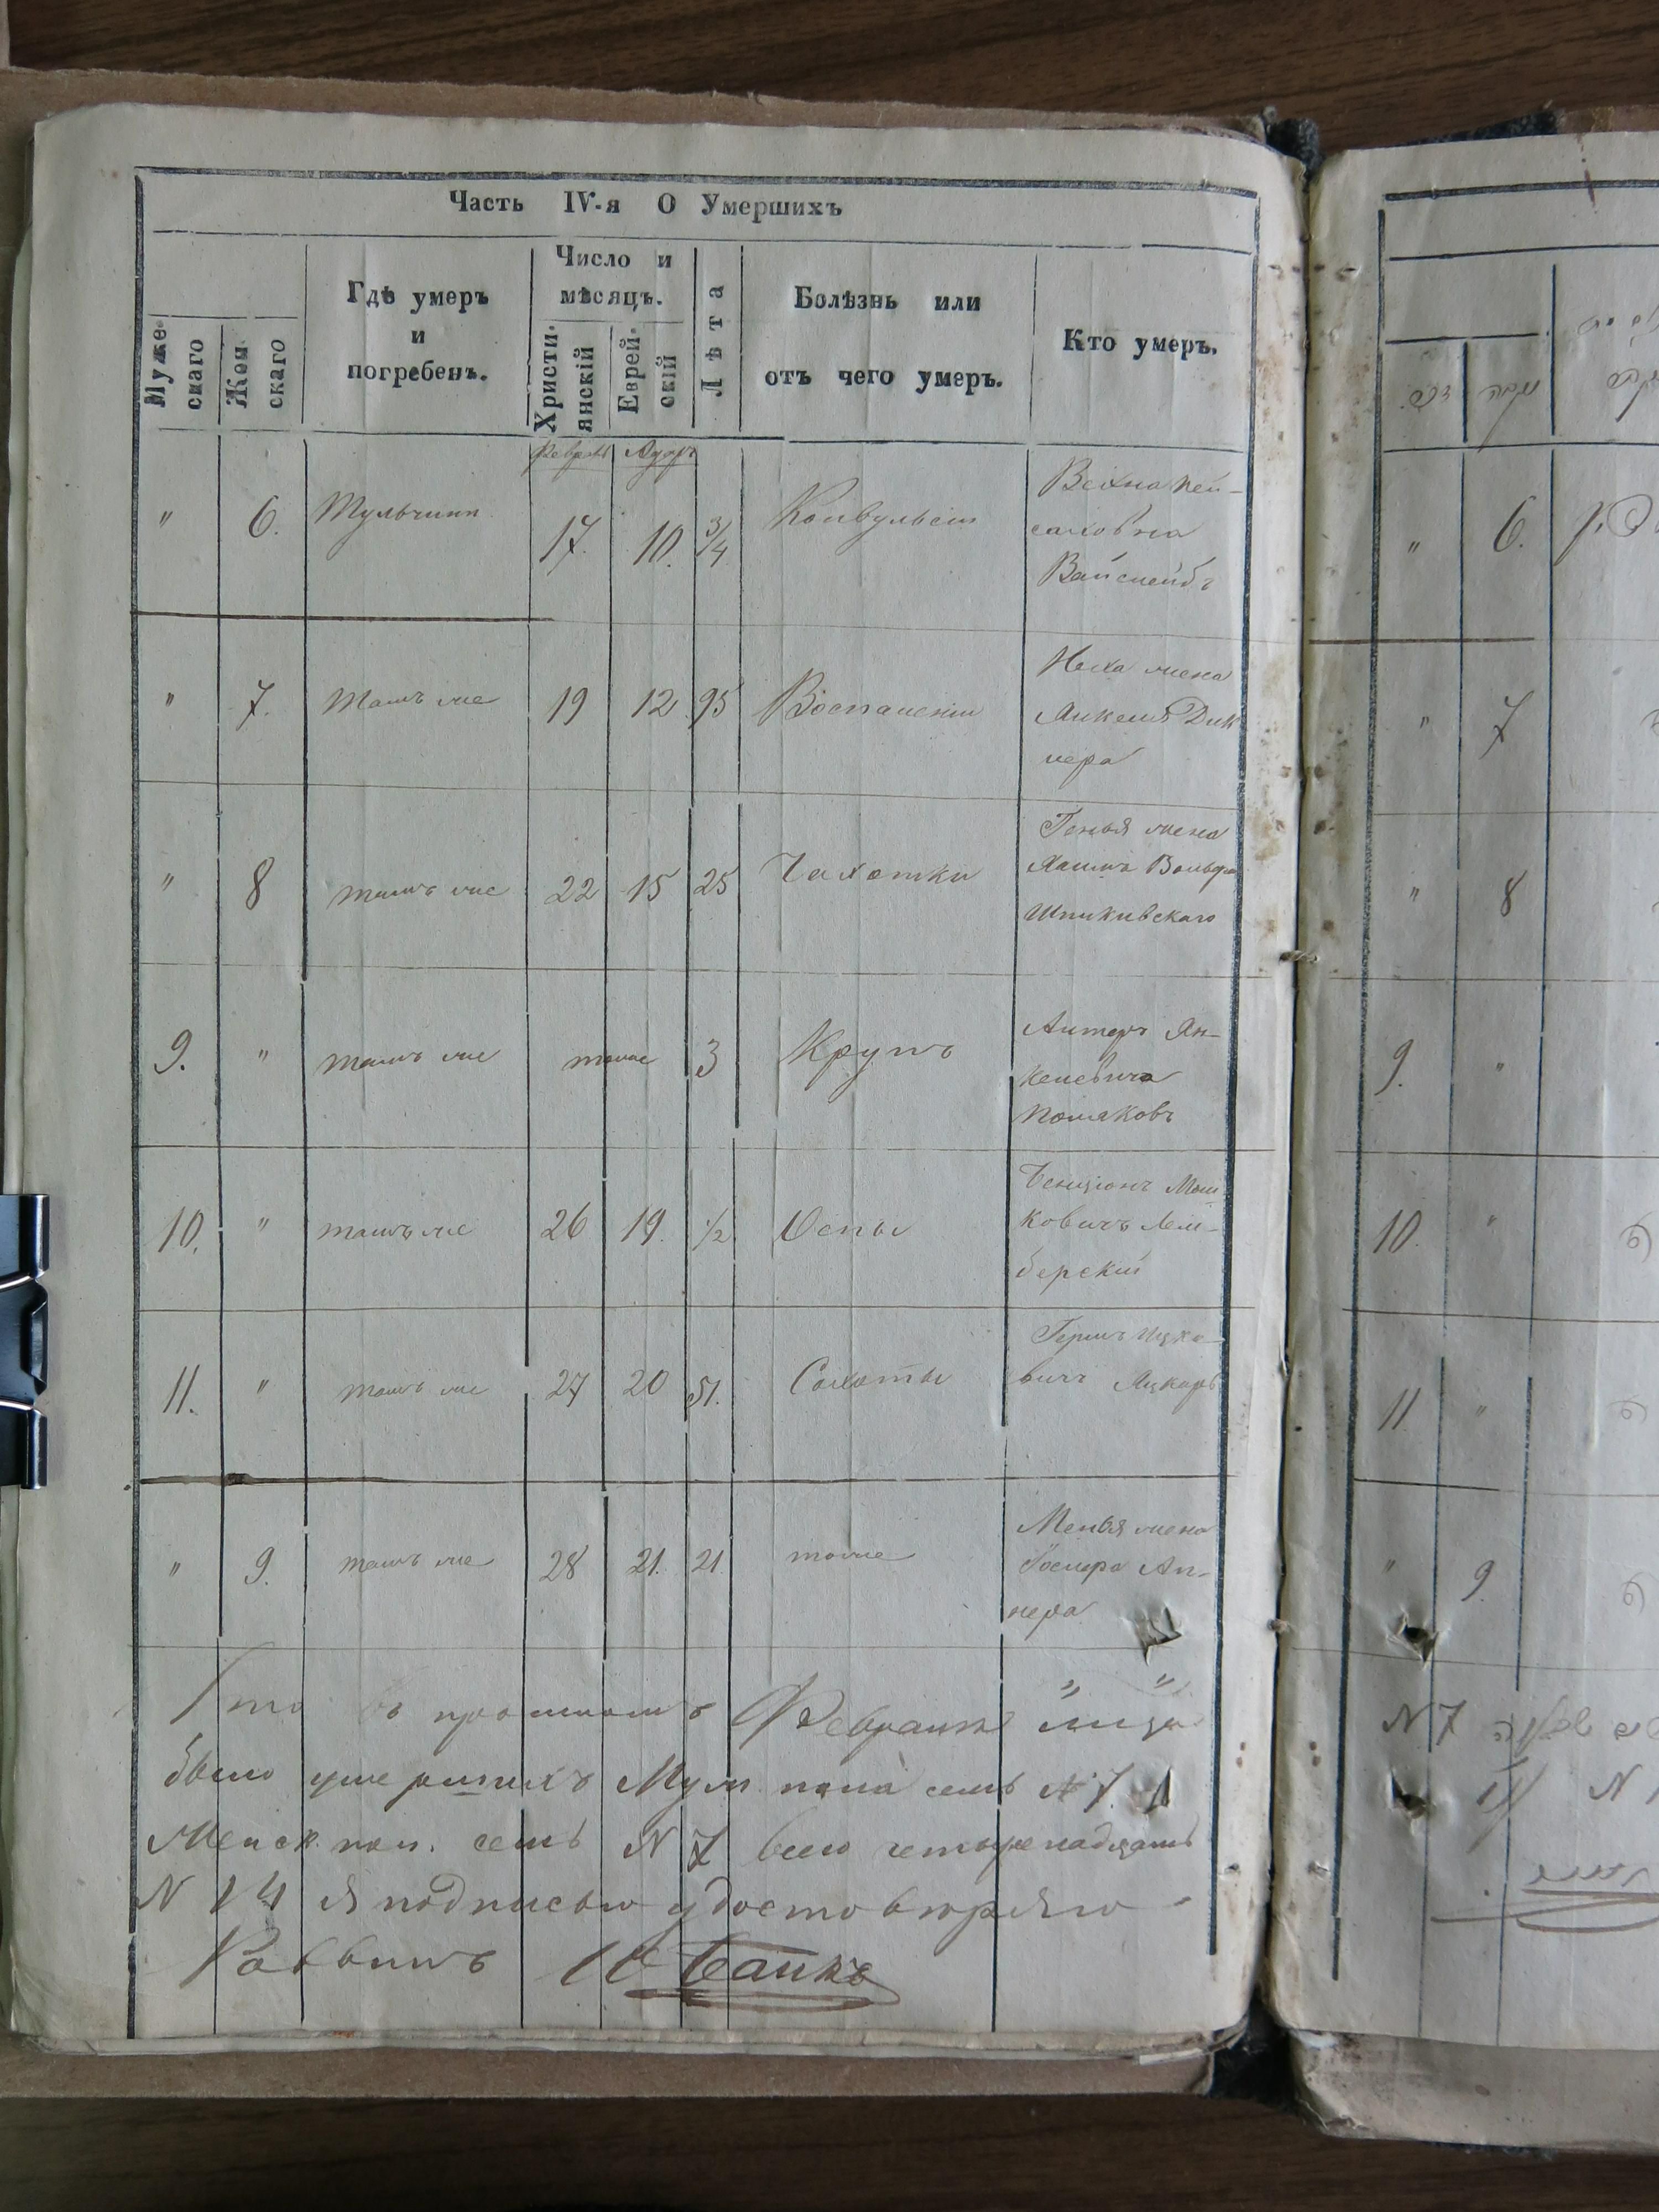 Часть IV-я О Умершихъ
Муже-
скаго
Жен-
скаго
Гдѣ умеръ
и
погребенъ.
Число и
мѣсяцъ.
Христи-
янскій
Еврей-
скій
Лѣта
Болѣзнь или
отъ чего умеръ.
Кто умеръ.
Февраль Адаръ
" 6. Тульчинъ 17. 10. 3/4 Конвульсіи
Вейхна Пей-
саховна
Вайсмейбъ
" 7. тамъ же 19 12 95 Воспаленіи
Неха жена
Анкеля Дик
нера
" 8 тамъ же 22 15 25 Чахотки
Генья жена
Хаима Вольфа
Шпиківскаго
9. " тамъ же тоже 3 Крупъ
Антеръ Ян-
келевичъ
Поляковъ
10. " тамъ же 26 19. 1/2 Оспы
Бенціонъ Мош
ковичъ Лем-
берскій
11. " тамъ же 27 20 51. Сухоты
Гершъ Ицко-
вичъ
" 9. тамъ же 28 21. 21. тоже
Менья жена
Іосифа Ап-
нера
Что въ прошломъ Февралѣ м-цѣ
было умершихъ Муж. пола семь № 7.
Женск. пол. семь N 7 всего четыренадцать
N 14 я подписью удостовѣряю
Раввинъ
" 6.
" 7
" 8
9. "
10. "
11 "
" 9.
N 7